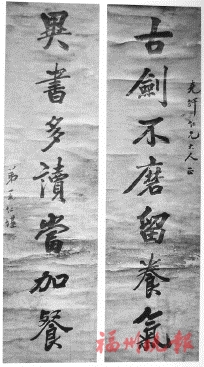 仁兄大人正
古劍不磨留養氣
異書多讀當加餐
弟王仁堪
福州晚报